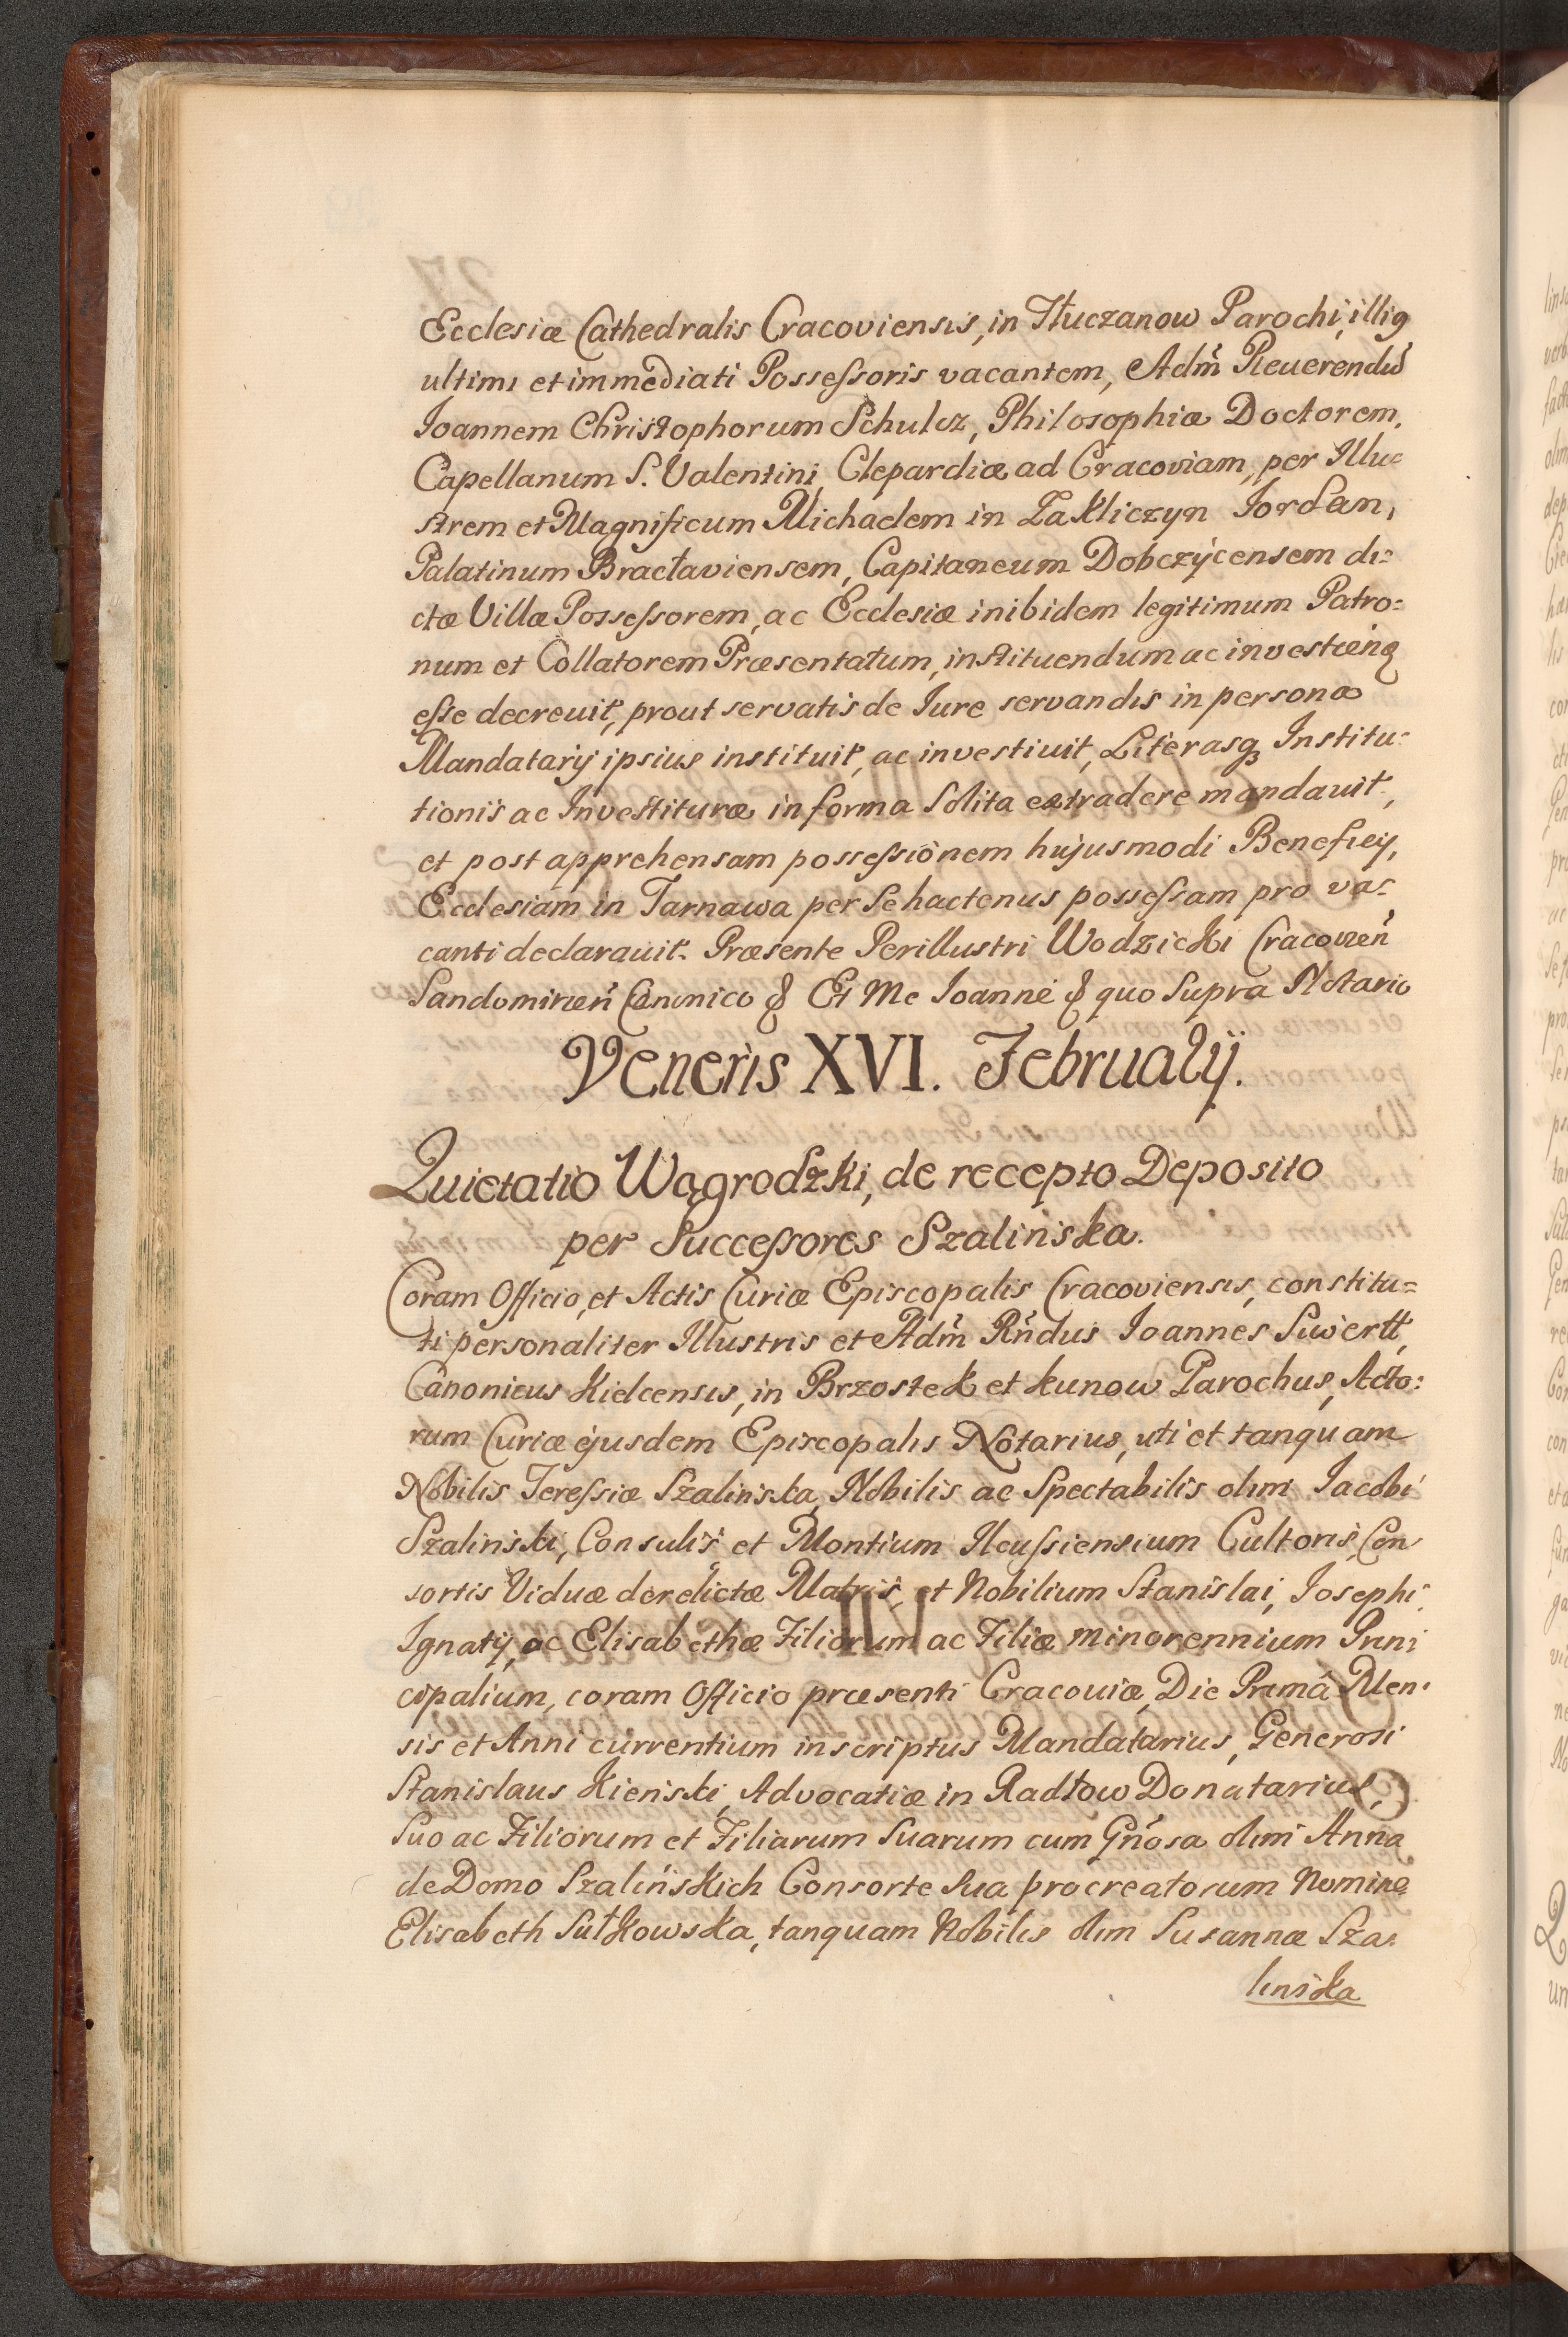 Ecclesiæ Cathedralis Cracoviensis, in Tłuczanow Parochi, illiꝰ
ultimi et immediati Possessoris vacantem, Adm̃ Reuerendũ
Ioannem Christophorum Schulcz, Philosophiæ Doctorem,
Capellanum S. Valentini Clepardiæ ad Cracoviam, per Illu=
strem et Magnificum Michaelem in Zakliczyn Iordan,
Palatinum Bractaviensem, Capitaneum Dobczycensem di=
ctæ Villæ Possessorem, ac Ecclesiæ inibidem legitimum Patro=
num et Collatorem Præsentatum, instituendum ac investien̄
esse decreuit, prout servatis de Iure servandis in persona
Mandatarij ipsius instituit, ac investiuit, Literasqꝫ Institu=
tionis ac Investituræ in forma Solita extradere mandauit,
et post apprehensam possessionem hujusmodi Beneficij,
Ecclesiam in Tarnawa per Se hactenus possessam pro va=
canti declarauit. Præsente Perillustri Wodzicki Cracovien̄
Sandomirien̄ Canonico & Et Me Ioanne & quo Supra Notario
Veneris XVI. Februarij.
Quietatio Wągrodzki, de recepto Deposito
per Successores Szalińska.
Coram Officio, et Actis Curiæ Episcopalis Cracoviensis, constitu=
ti personaliter Illustris et Adm̃ Rñdus Ioannes Suwertt,
Canonicus Kielcensis, in Brzostek et Kunow Parochus, Acto=
rum Curiæ ejusdem Episcopalis Notarius, uti et tanquam
Nobilis Teressiæ Szalinska, Nobilis ac Spectabilis olim Iacobi
Szalinski, Consulis et Montium Ilcussiensium Cultoris, Con
sortis Viduæ derelictæ Matris, et Nobilium Stanislai, Iosephi,
Ignatij, ac Elisabethæ Filiorum ac Filiæ minorennium Prin
cipalium, coram Officio præsenti Cracouiæ, Die Primâ Men=
sis et Anni currentium inscriptus Mandatarius, Generosi
Stanislaus Kienski, Advocatiæ in Radłow Donatarius,
Suo ac Filiorum et Filiarum Suarum cum Gñosa olim Anna
de Domo Szalińskich Consorte Sua procreatorum Nomine
Elisabeth Sułkowska, tanquam Nobilis olim Susannæ Sza=
linska